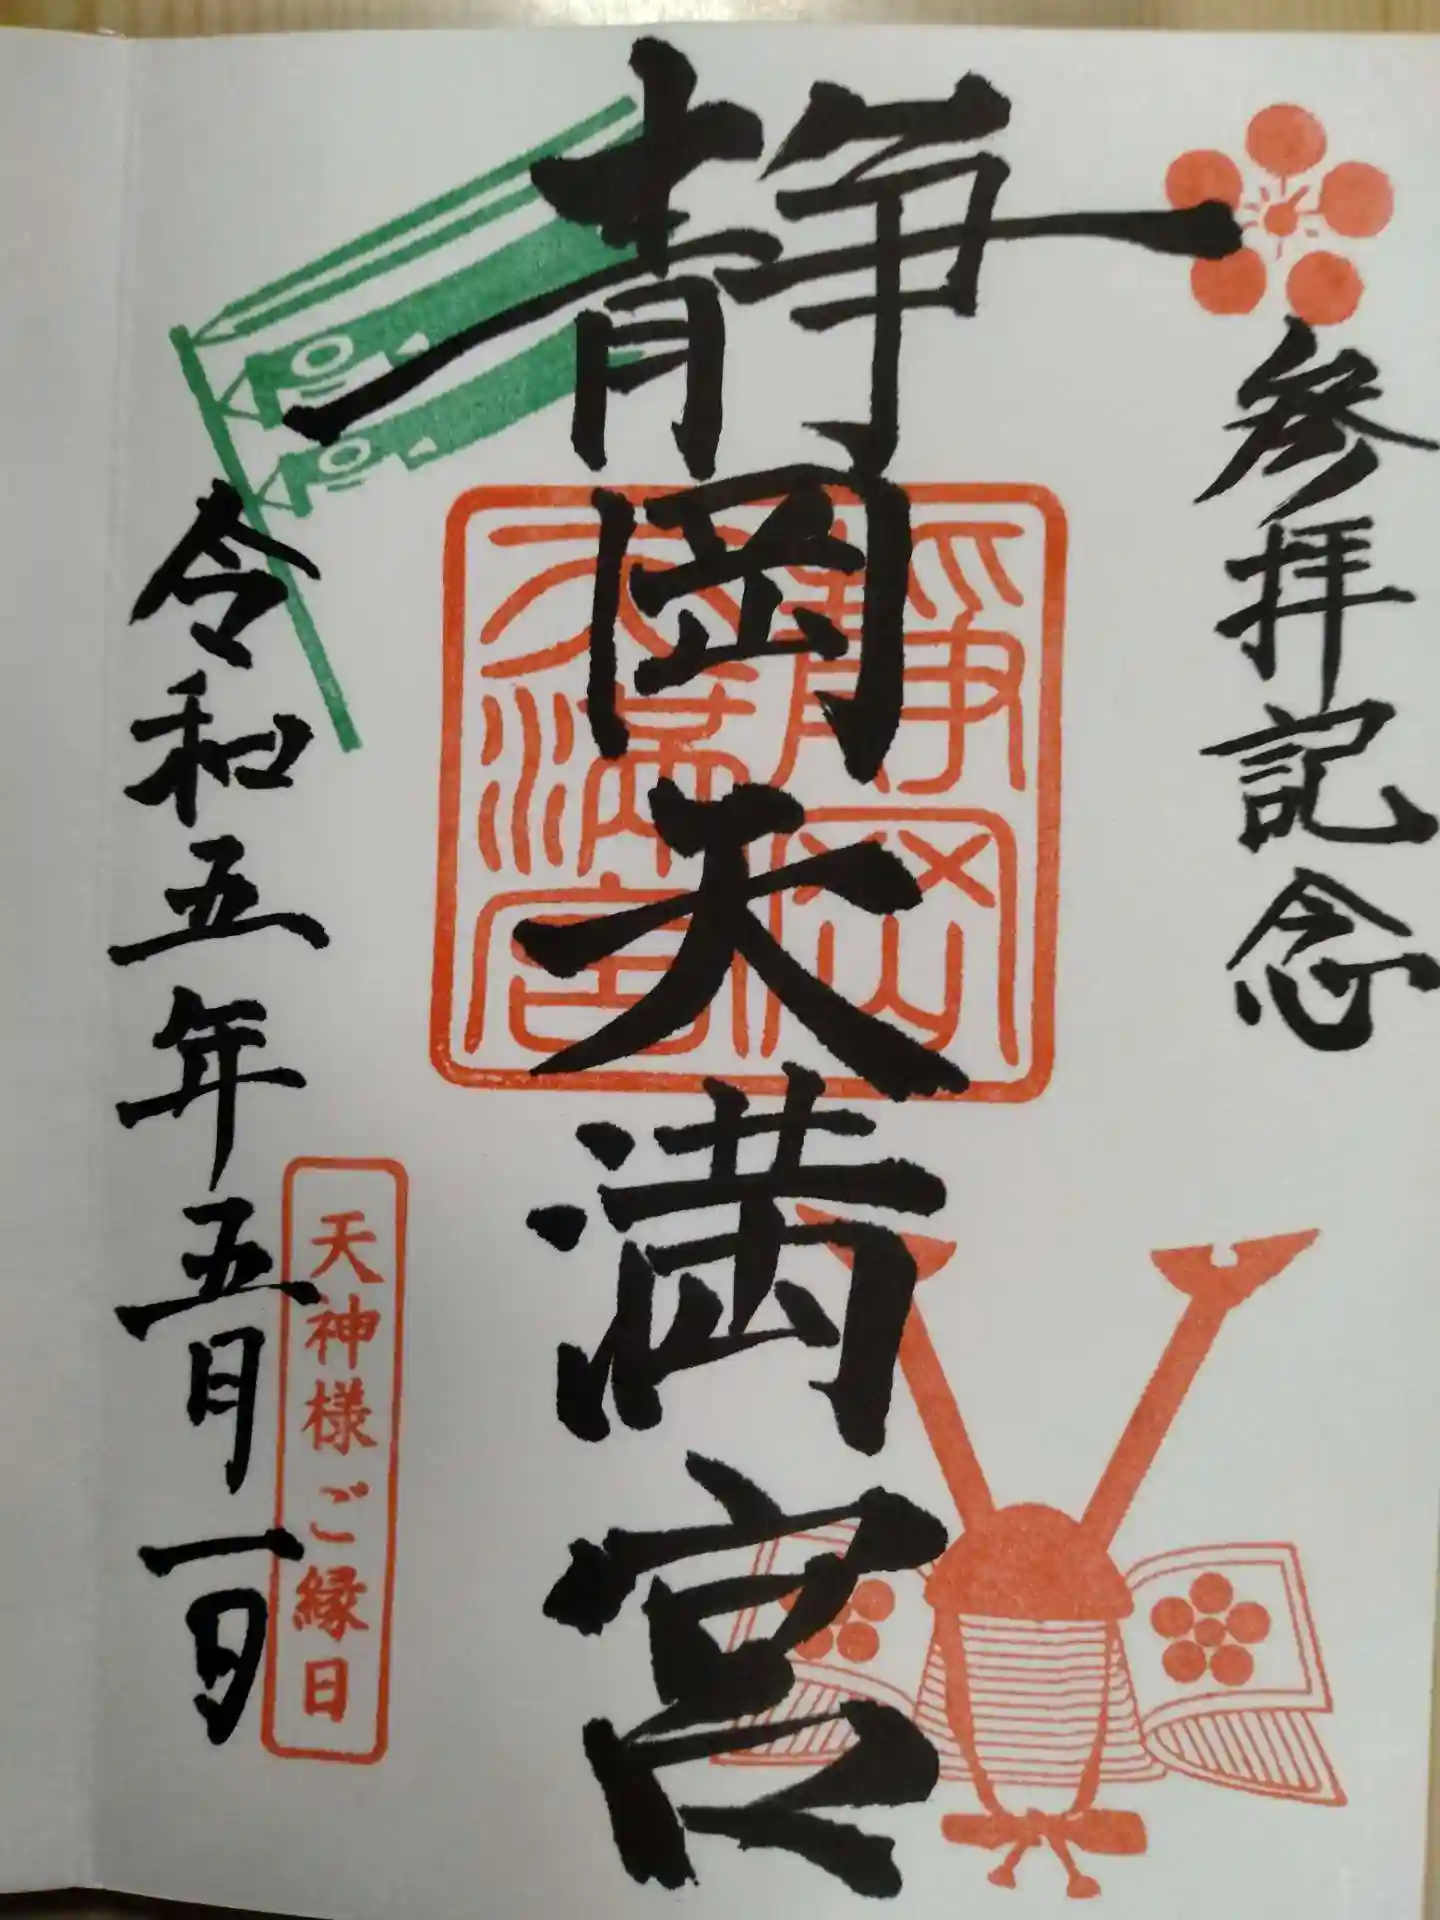 參拝記念
静岡天満宮
静岡
天満宮
天神様ご縁日
令和五年五月一日